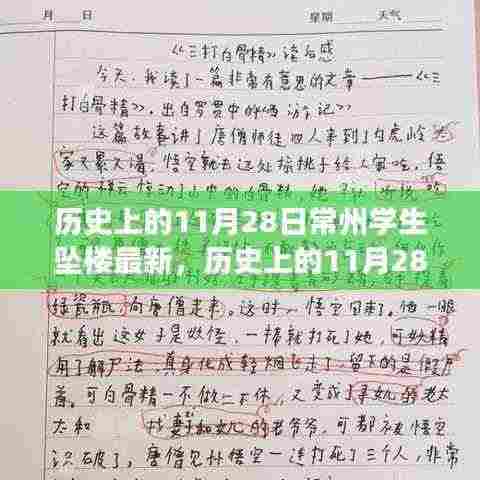 月 日 星期 天气
《三打白骨精》读后感
今天，我读了一篇非常有意思的文章——《三
打白骨精》，出自罗贯中的《西游记》
这篇故事讲了唐僧师徒四人来到了白虎岭
家又累又渴，悟空就去远处摘桃子给人家吃，悟
历史上的11月28日常州学生
坠楼最新，历史上的11月28
提瓷瓶 向唐僧走来。这时，悟空回来了。他一眼
就看出这女子是妖怪，一棒就打死了她，可妖精
用了解尸法，真身化成轻烟飞走了，留下的是假
着。可白骨精一不做二不休，又变成了 的老太
太和 的老爷爷，可都被悟空
识破了，唐僧见孙悟空一连打死了三个人，非常